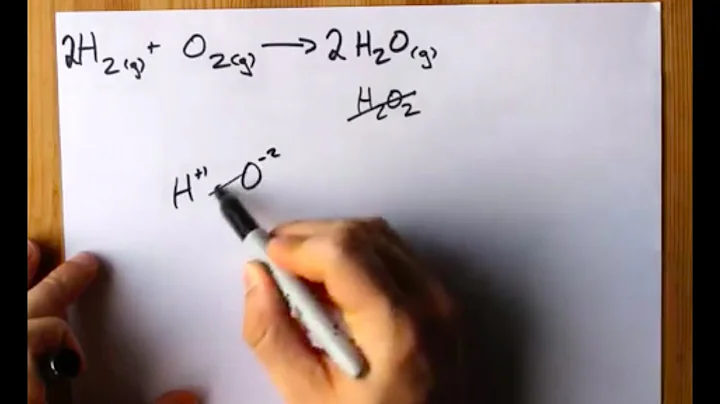 2H₂(g) + O₂(g) → 2H₂O(g)
H₂O₂
H⁺¹ O⁻²